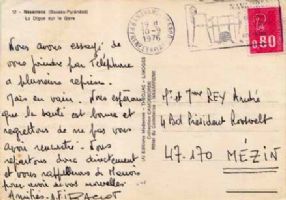 Navarrenx (Basses-Pyrénées)
La Digue sur le Gave
19 H
10-9
1976
0,80
Nous avons essayé de
vous joindre par Téléphone
à plusieurs reprises.
Mais en vain. Nous espérons
que la santé est bonne et
regrettons de ne pas vous
avoir rencontré. Nous
repartons donc directement
et vous rappellerons de
pour avoir de vos nouvelles
Amitiés
Mr et Mme REY André
4 Bd Président Roosvelt
47.170 MÉZIN